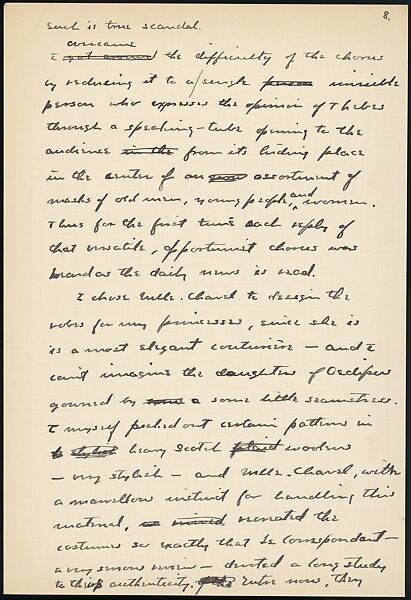 8.
such is true scandal.
overcame
I got around the difficulty of the chorus
by reducing it to a single person invisible
person who expresses the opinion of Thebes
through a speaking-tube opening to the
audience in the from its hiding place
in the center of an assortment of
masks of old men, young people, and women.
Thus for the first time each reply of
that versatile, opportunist chorus was
heard as the daily news is read.
I chose Mlle. Chanel to design the
robes for my princesses, since she is
is a most elegant couturière — and I
can't imagine the daughters of Oedipus
gowned by a some little seamstress.
I myself picked out certain patterns in
heavy Scotch plaid woolens
— very stylish — and Mlle. Chanel, with
a marvellous instinct for handling this
material, recreated the
costumes so exactly that le Correspondant —
a very serious review — devoted a long study
to their authenticity. Enter now, they